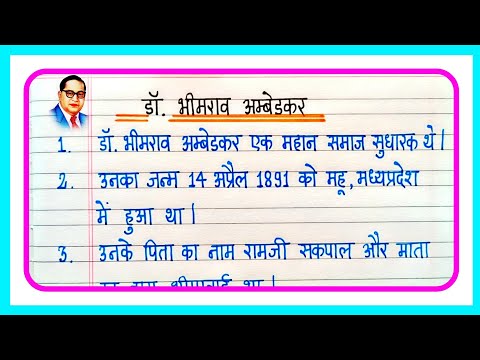 डॉ. भीमराव अम्बेडकर
1. डॉ. भीमराव अम्बेडकर एक महान समाज सुधारक थे |
2. उनका जन्म 14 अप्रैल 1891 को महू, मध्यप्रदेश
में हुआ था |
3. उनके पिता का नाम रामजी सकपाल और माता